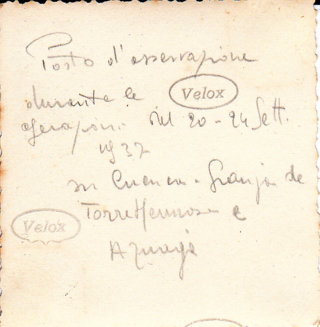 Posto d'osservazione
durante le
Velox
operazioni del 20-24 Sett.
1937
su Cuenca - Granja de
Velox
Torrehermosa e
Azuaga